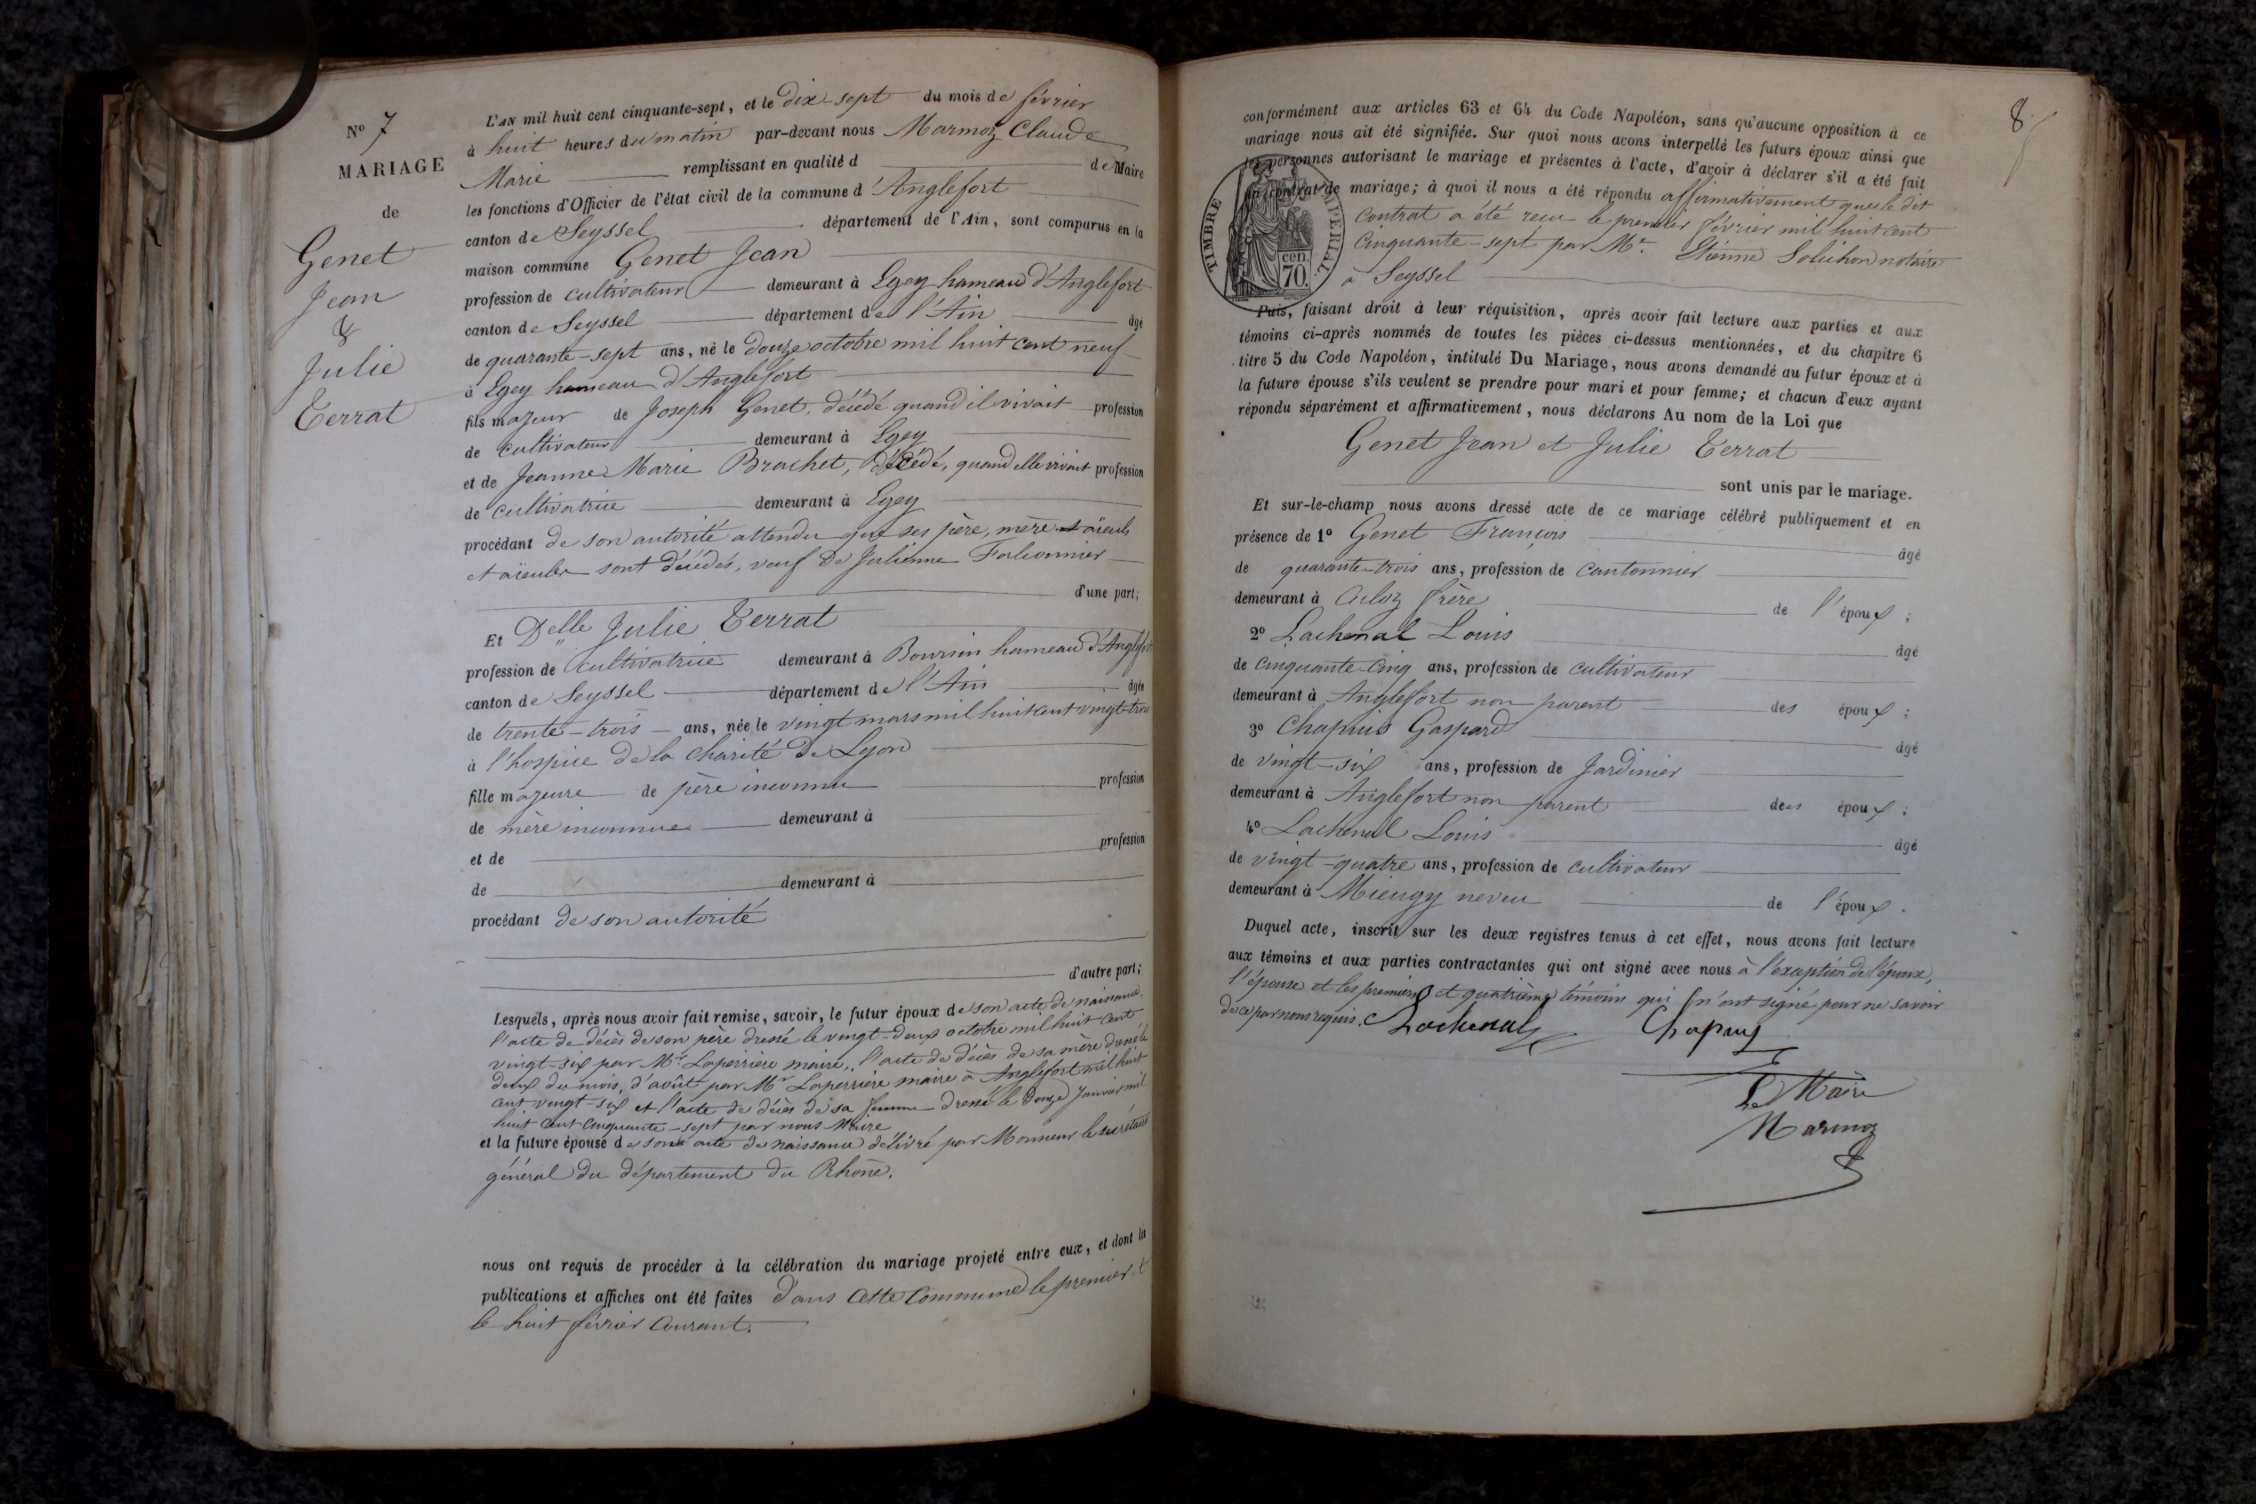 N° 7
MARIAGE
de
Genet
Jean
&
Julie
Terrat
L'AN mil huit cent cinquante-sept, et le dix-sept du mois de février
à huit heures du matin par-devant nous Marmoz Claude
Marie remplissant en qualité d de Maire
les fonctions d'Officier de l'état civil de la commune d'Anglefort
canton de Seyssel département de l'Ain, sont comparus en la
maison commune Genet Jean
profession de cultivateur demeurant à Egey hameau d'Anglefort
canton de Seyssel département de l'Ain âgé
de quarante-sept ans, né le douze octobre mil huit cent neuf
à Egey hameau d'Anglefort
fils majeur de Joseph Genet, décédé quand il vivait profession
de cultivateur demeurant à Egey
et de Jeanne Marie Brachet, Décédé, quand elle vivait profession
de cultivatrice demeurant à Egey
procédant de son autorité attendu que ses père, mère et aïeuls
et aïeules sont décédés, veuf de Julienne
d'une part;
Et Delle Julie Terrat
profession de cultivatrice demeurant à Boursin hameau d'Anglefort
canton de Seyssel département de l'Ain âgée
de trente-trois ans, née le vingt mars mil huit cent vingt-trois
à l'hospice de la charité de Lyon
fille majeure de père inconnu profession
de mère inconnue demeurant à
et de profession
de demeurant à
procédant de son autorité
d'autre part;
Lesquels, après nous avoir fait remise, savoir, le futur époux de son acte de naissance.
l'acte de décès de son père dressé le vingt-deux octobre mil huit cent
vingt-six par Mr Laperrière maire, l'acte de décès de sa mère dressé le
deux du mois d'août par Mr Laperrière maire à Anglefort mil huit
cent vingt-six et l'acte de décès de sa femme dressé le douze Janvier mil
huit cent cinquante-sept par nous Maire
et la future épouse de son acte de naissance délivré par Monsieur le secrétaire
général du département du Rhône.
nous ont requis de procéder à la célébration du mariage projeté entre eux, et dont la
publications et affiches ont été faites dans cette commune le premier &
le huit février courant.
8
conformément aux articles 63 et 64 du Code Napoléon, sans qu'aucune opposition à ce
mariage nous ait été signifiée. Sur quoi nous avons interpellé les futurs époux ainsi que
les personnes autorisant le mariage et présentes à l'acte, d'avoir à déclarer s'il a été fait
un contrat de mariage; à quoi il nous a été répondu affirmativement que le dit
contrat a été reçu le premier février mil huit cent
cinquante-sept par Mr. Etienne notaire
à Seyssel
TIMBRE IMPÉRIAL
cen.
70.
Puis, faisant droit à leur réquisition, après avoir fait lecture aux parties et aux
témoins ci-après nommés de toutes les pièces ci-dessus mentionnées, et du chapitre 6
titre 5 du Code Napoléon, intitulé Du Mariage, nous avons demandé au futur époux et à
la future épouse s'ils veulent se prendre pour mari et pour femme; et chacun d'eux ayant
répondu séparément et affirmativement, nous déclarons Au nom de la Loi que
Genet Jean et Julie Terrat
sont unis par le mariage.
Et sur-le-champ nous avons dressé acte de ce mariage célébré publiquement et en
présence de 1° Genet François âgé
de quarante-trois ans, profession de cantonnier
demeurant à frère de l'époux;
2° Lachenal Louis âgé
de cinquante-cinq ans, profession de cultivateur
demeurant à Anglefort non parent des époux;
3° Chapuis Gaspard âgé
de vingt-six ans, profession de Jardinier
demeurant à Anglefort non parent des époux;
4° Lachenal Louis âgé
de vingt-quatre ans, profession de cultivateur
demeurant à Mieugy neveu de l'époux.
Duquel acte, inscrit sur les deux registres tenus à cet effet, nous avons fait lecture
aux témoins et aux parties contractantes qui ont signé avec nous à l'exception de l'époux,
l'épouse et les premiers et quatrième témoins qui n'ont signé pour ne savoir
de ce par nous requis. Lachenal Chapuy
Le Maire
Marmoz